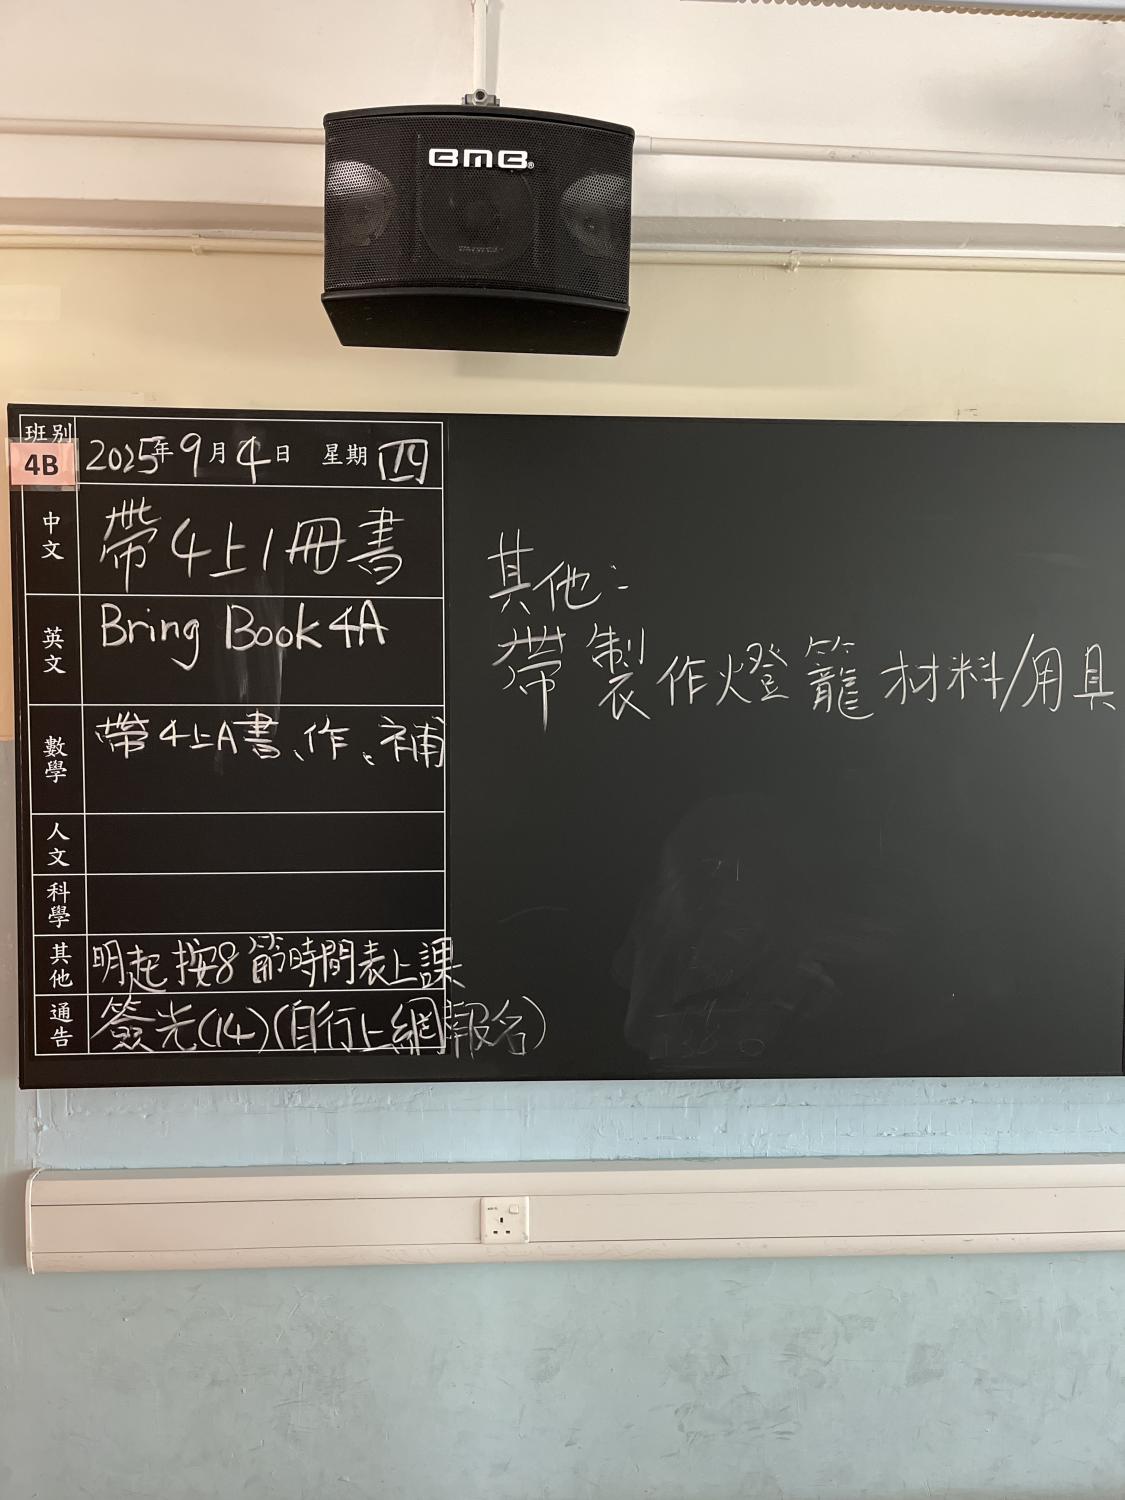 BMB®
班別
4B
2025年9月4日 星期四
中文 帶4上1冊書
英文 Bring Book 4A
數學 帶4上A書、作、補
人文
科學
其他 明起按8節時間表上課
通告 簽光(14)(自行上網報名)
其他：
帶製作燈籠材料/用具